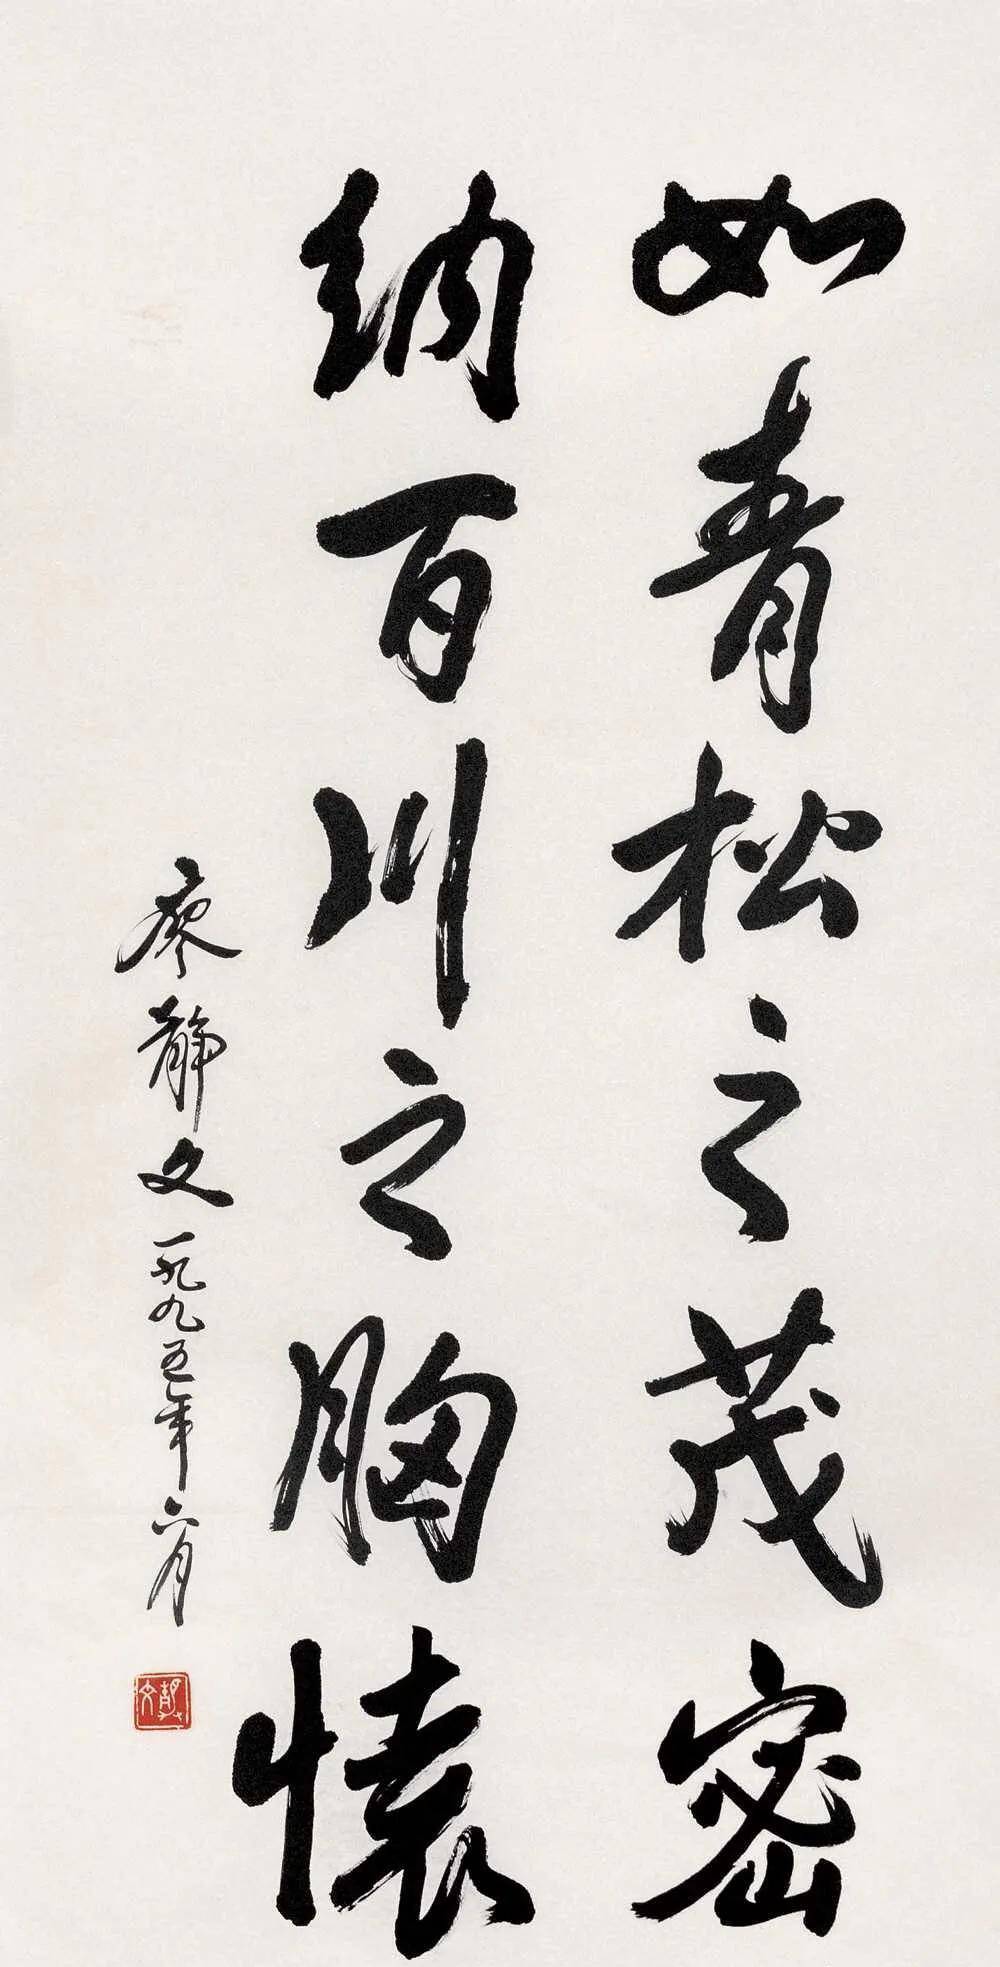 如青松之茂密
纳百川之胸懷
廖静文一九九五年六月
静文